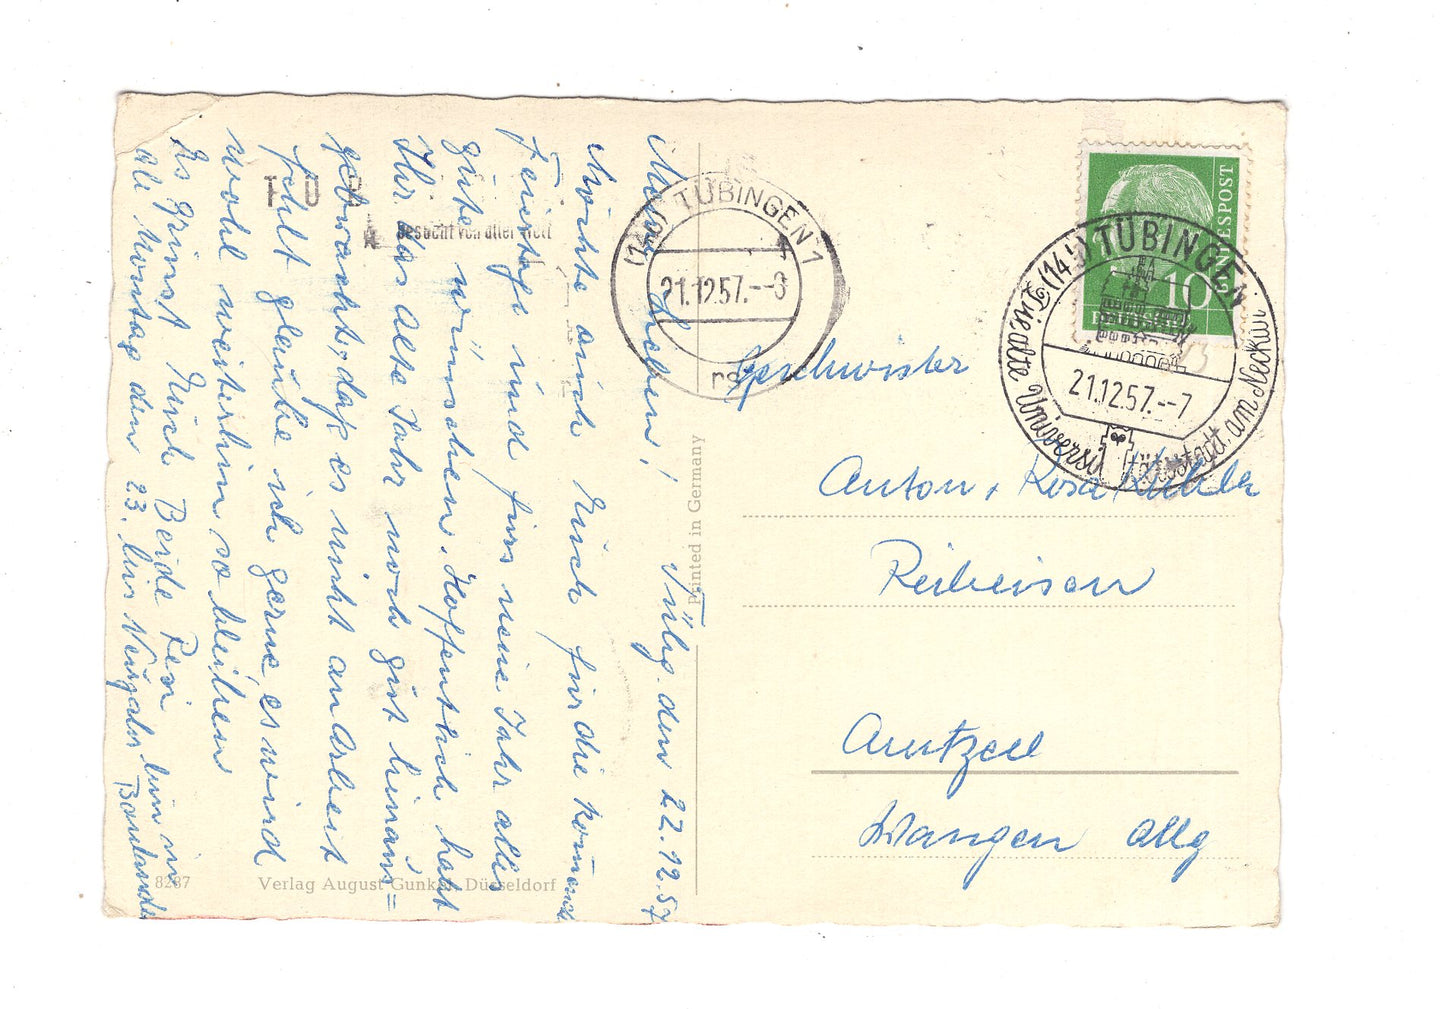 Meine Lieben! Tübg. den 22.12.57
Möchte auch Euch für die komende
Feiertage und fürs neue Jahr alles
gute wünschen. Hoffentlich habt
Ihr das alte Jahr noch gut hinaus=
gebracht, daß es nicht an Arbeit
fehlt glaube ich gerne, es wird
wohl weiterhin so bleiben
Es grüsst Euch Beide
ab Montag den 23.
8287
Verlag August Gunkel, Düsseldorf
TÜB
Besucht von aller Welt
Printed in Germany
(14b) TÜBINGEN 1
21.12.57.--8
rs
BUNDESPOST
10
DEUTSCHE
(14b) TÜBINGEN
21.12.57.--7
Die alte Universitätsstadt am Neckar
Geschwister
Anton u. Rosa
Reibeisen
Amtzell
Wangen Allg